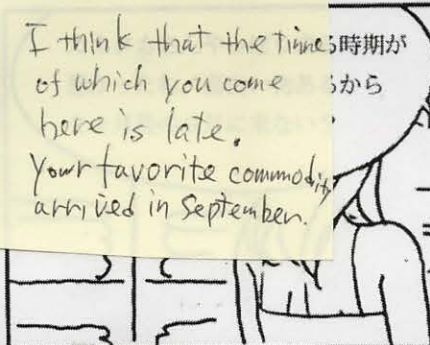 I think that the times
of which you come
here is late.
Your favorite commodity
arrived in September.
る時期が
から